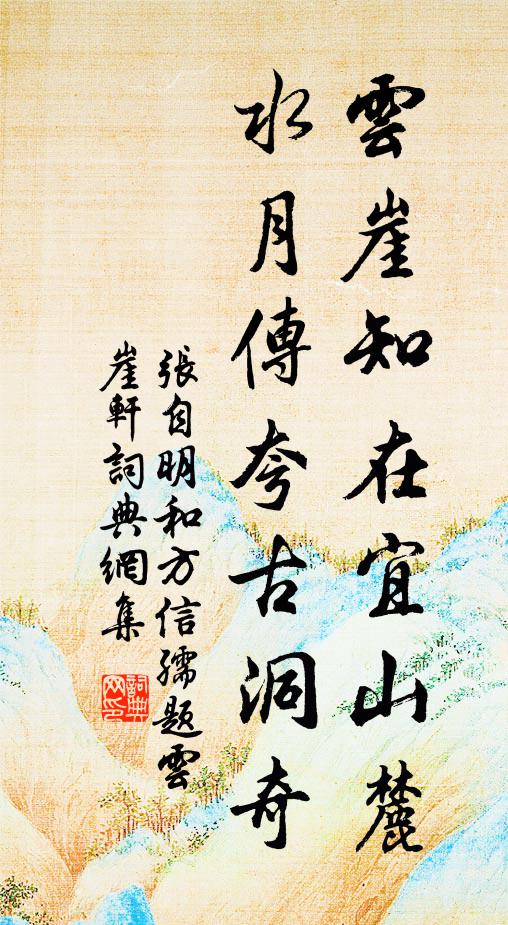 雲崖知在宜山麓
水月傳夸古洞奇
張自明和方信孺題雲
崖軒詞典網集
詞典網印